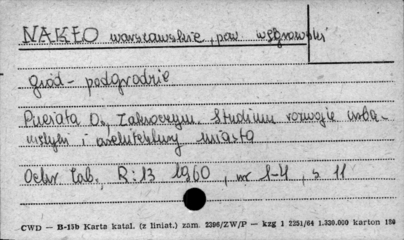 NAKŁO warszawskie, pow. węgrowski
gród - podgrodzie
Pusiata D., Zakroczym. Studium rozwoju urba-
nistyki i architektury miasta
Ochr. Zab., R:13 1960, nr 1-4, s 11
CWD — B-15b Karta katal. (z liniat.) zam. 2396/ZW/P — kzg 1 2251/64 1.330.000 karton 180